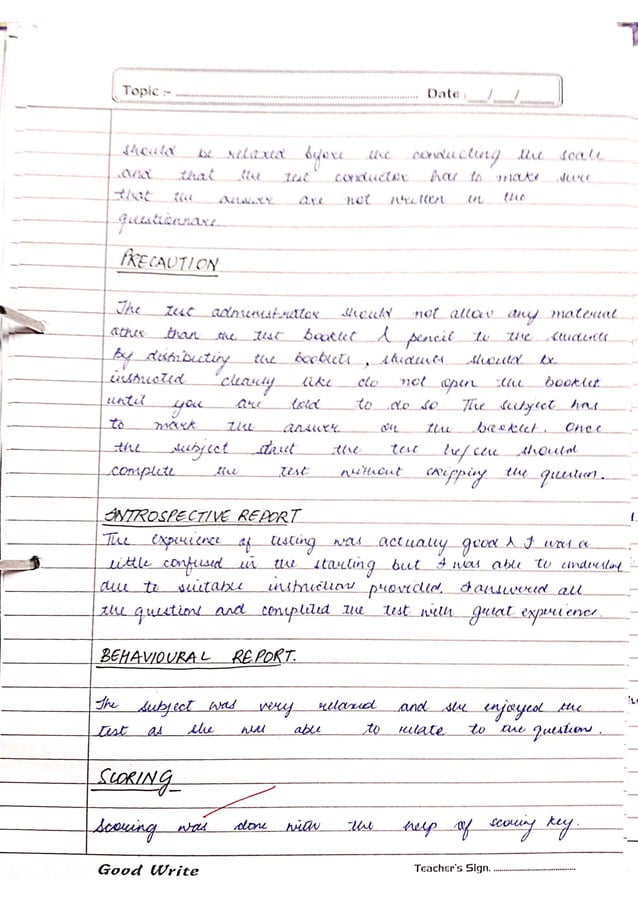 Topic :- Date : __/__/____
should be relaxed before the conducting the scale
and that the test conductor has to make sure
that the answer are not written in the
questionnare
PRECAUTION
The test administrator should not allow any material
other than the test booklet & pencil to the students
By distributing the booklets, students should be
instructed clearly like do not open the booklet
until you are told to do so The subject has
to mark the answer on the booklet. Once
the subject start the test he/she should
complete the test without skipping the question.
INTROSPECTIVE REPORT
The experience of testing was actually good & I was a
little confused in the starting but I was able to understand
due to suitable instruction provided. I answered all
the questions and completed the test with great experience.
BEHAVIOURAL REPORT.
The subject was very relaxed and she enjoyed the
test as she was able to relate to the question.
SCORING
Scouing was done with the help of scoring key.
Good Write Teacher's Sign.